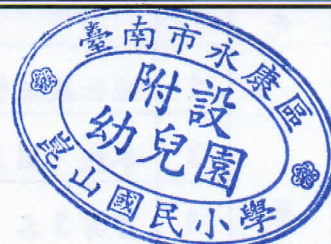 臺南市永康區
附設
幼兒園
崑山國民小學